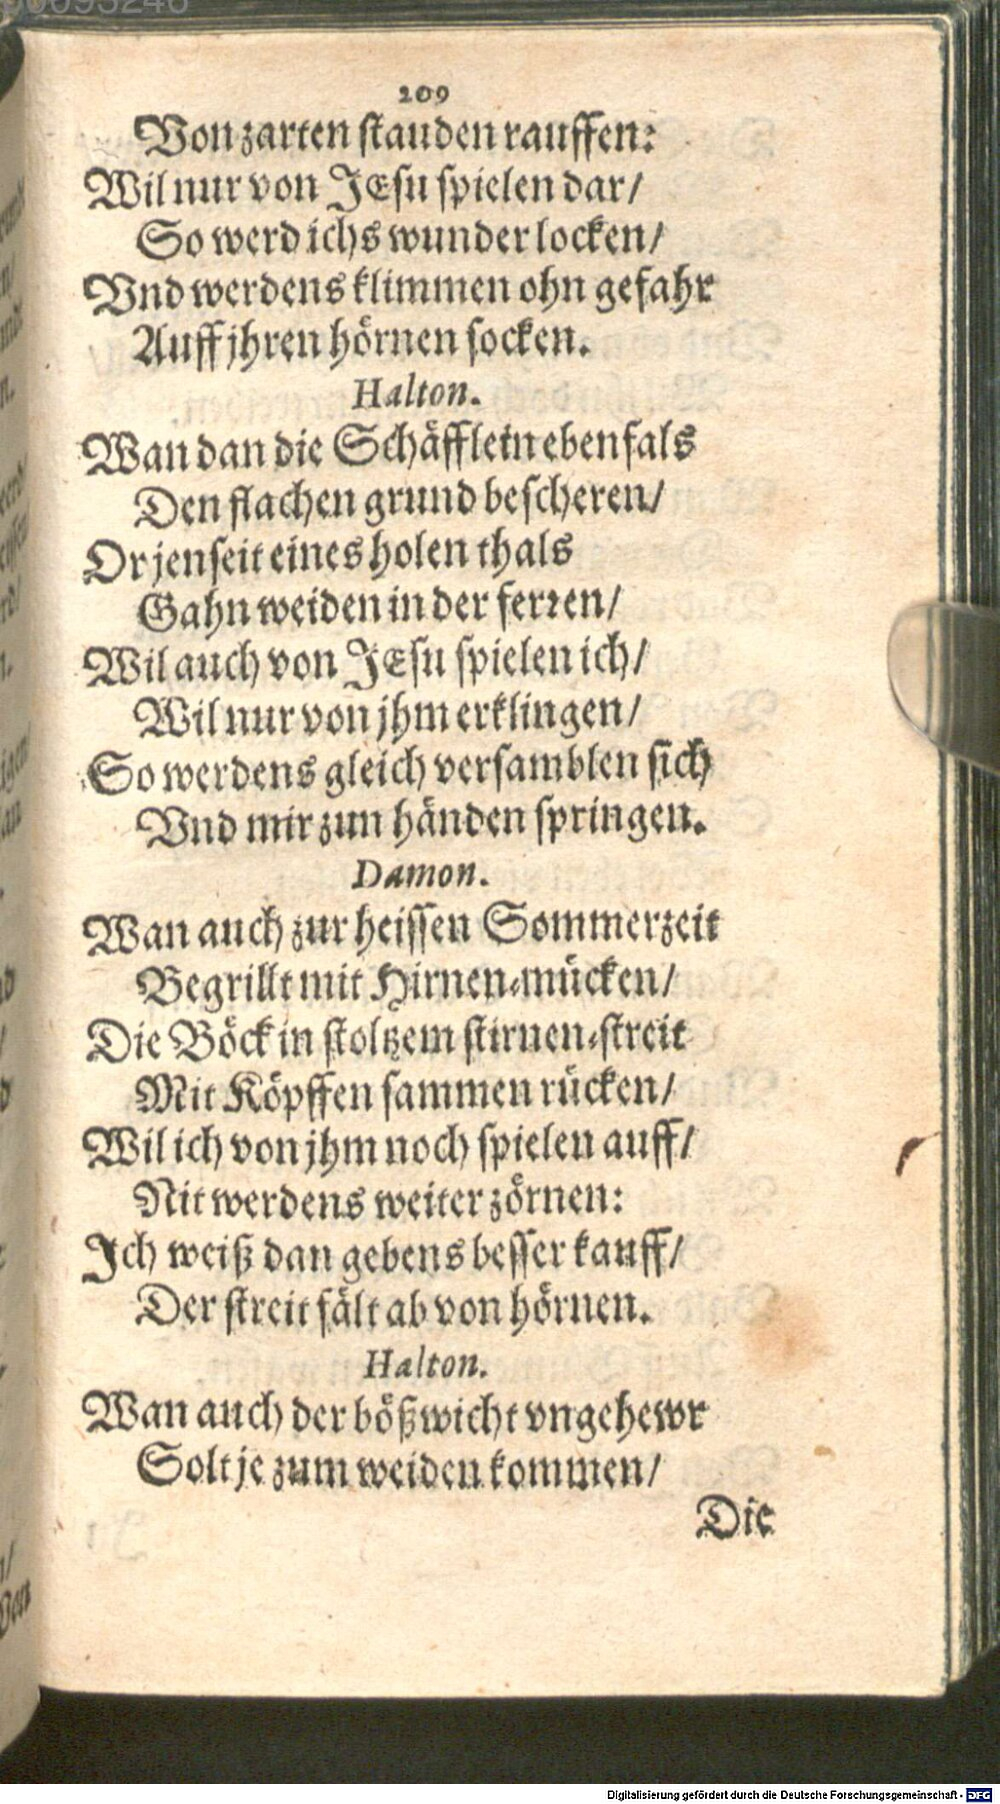 209
Von zarten stauden rauffen:
Wil nur von JEsu spielen dar/
So werd ichs wunder locken/
Vnd werdens klimmen ohn gefahr
Auff jhren hörnen socken.
Halton.
Wan dan die Schäfflein ebenfals
Den flachen grund bescheren/
Or jenseit eines holen thals
Gahn weiden in der ferren/
Wil auch von JEsu spielen ich/
Wil nur von jhm erklingen/
So werdens gleich versamblen sich
Vnd mir zun händen springen.
Damon.
Wan auch zur heissen Sommerzeit
Begrillt mit Hirnen-mücken/
Die Böck in stoltzem stirnen-streit
Mit Köpffen sammen rücken/
Wil ich von jhm noch spielen auff/
Nit werdens weiter zörnen:
Ich weiß dan gebens besser kauff/
Der streit fält ab von hörnen.
Halton.
Wan auch der bößwicht vngehewr
Solt je zum weiden kommen/
Die
Digitalisierung gefördert durch die Deutsche Forschungsgemeinschaft - DFG